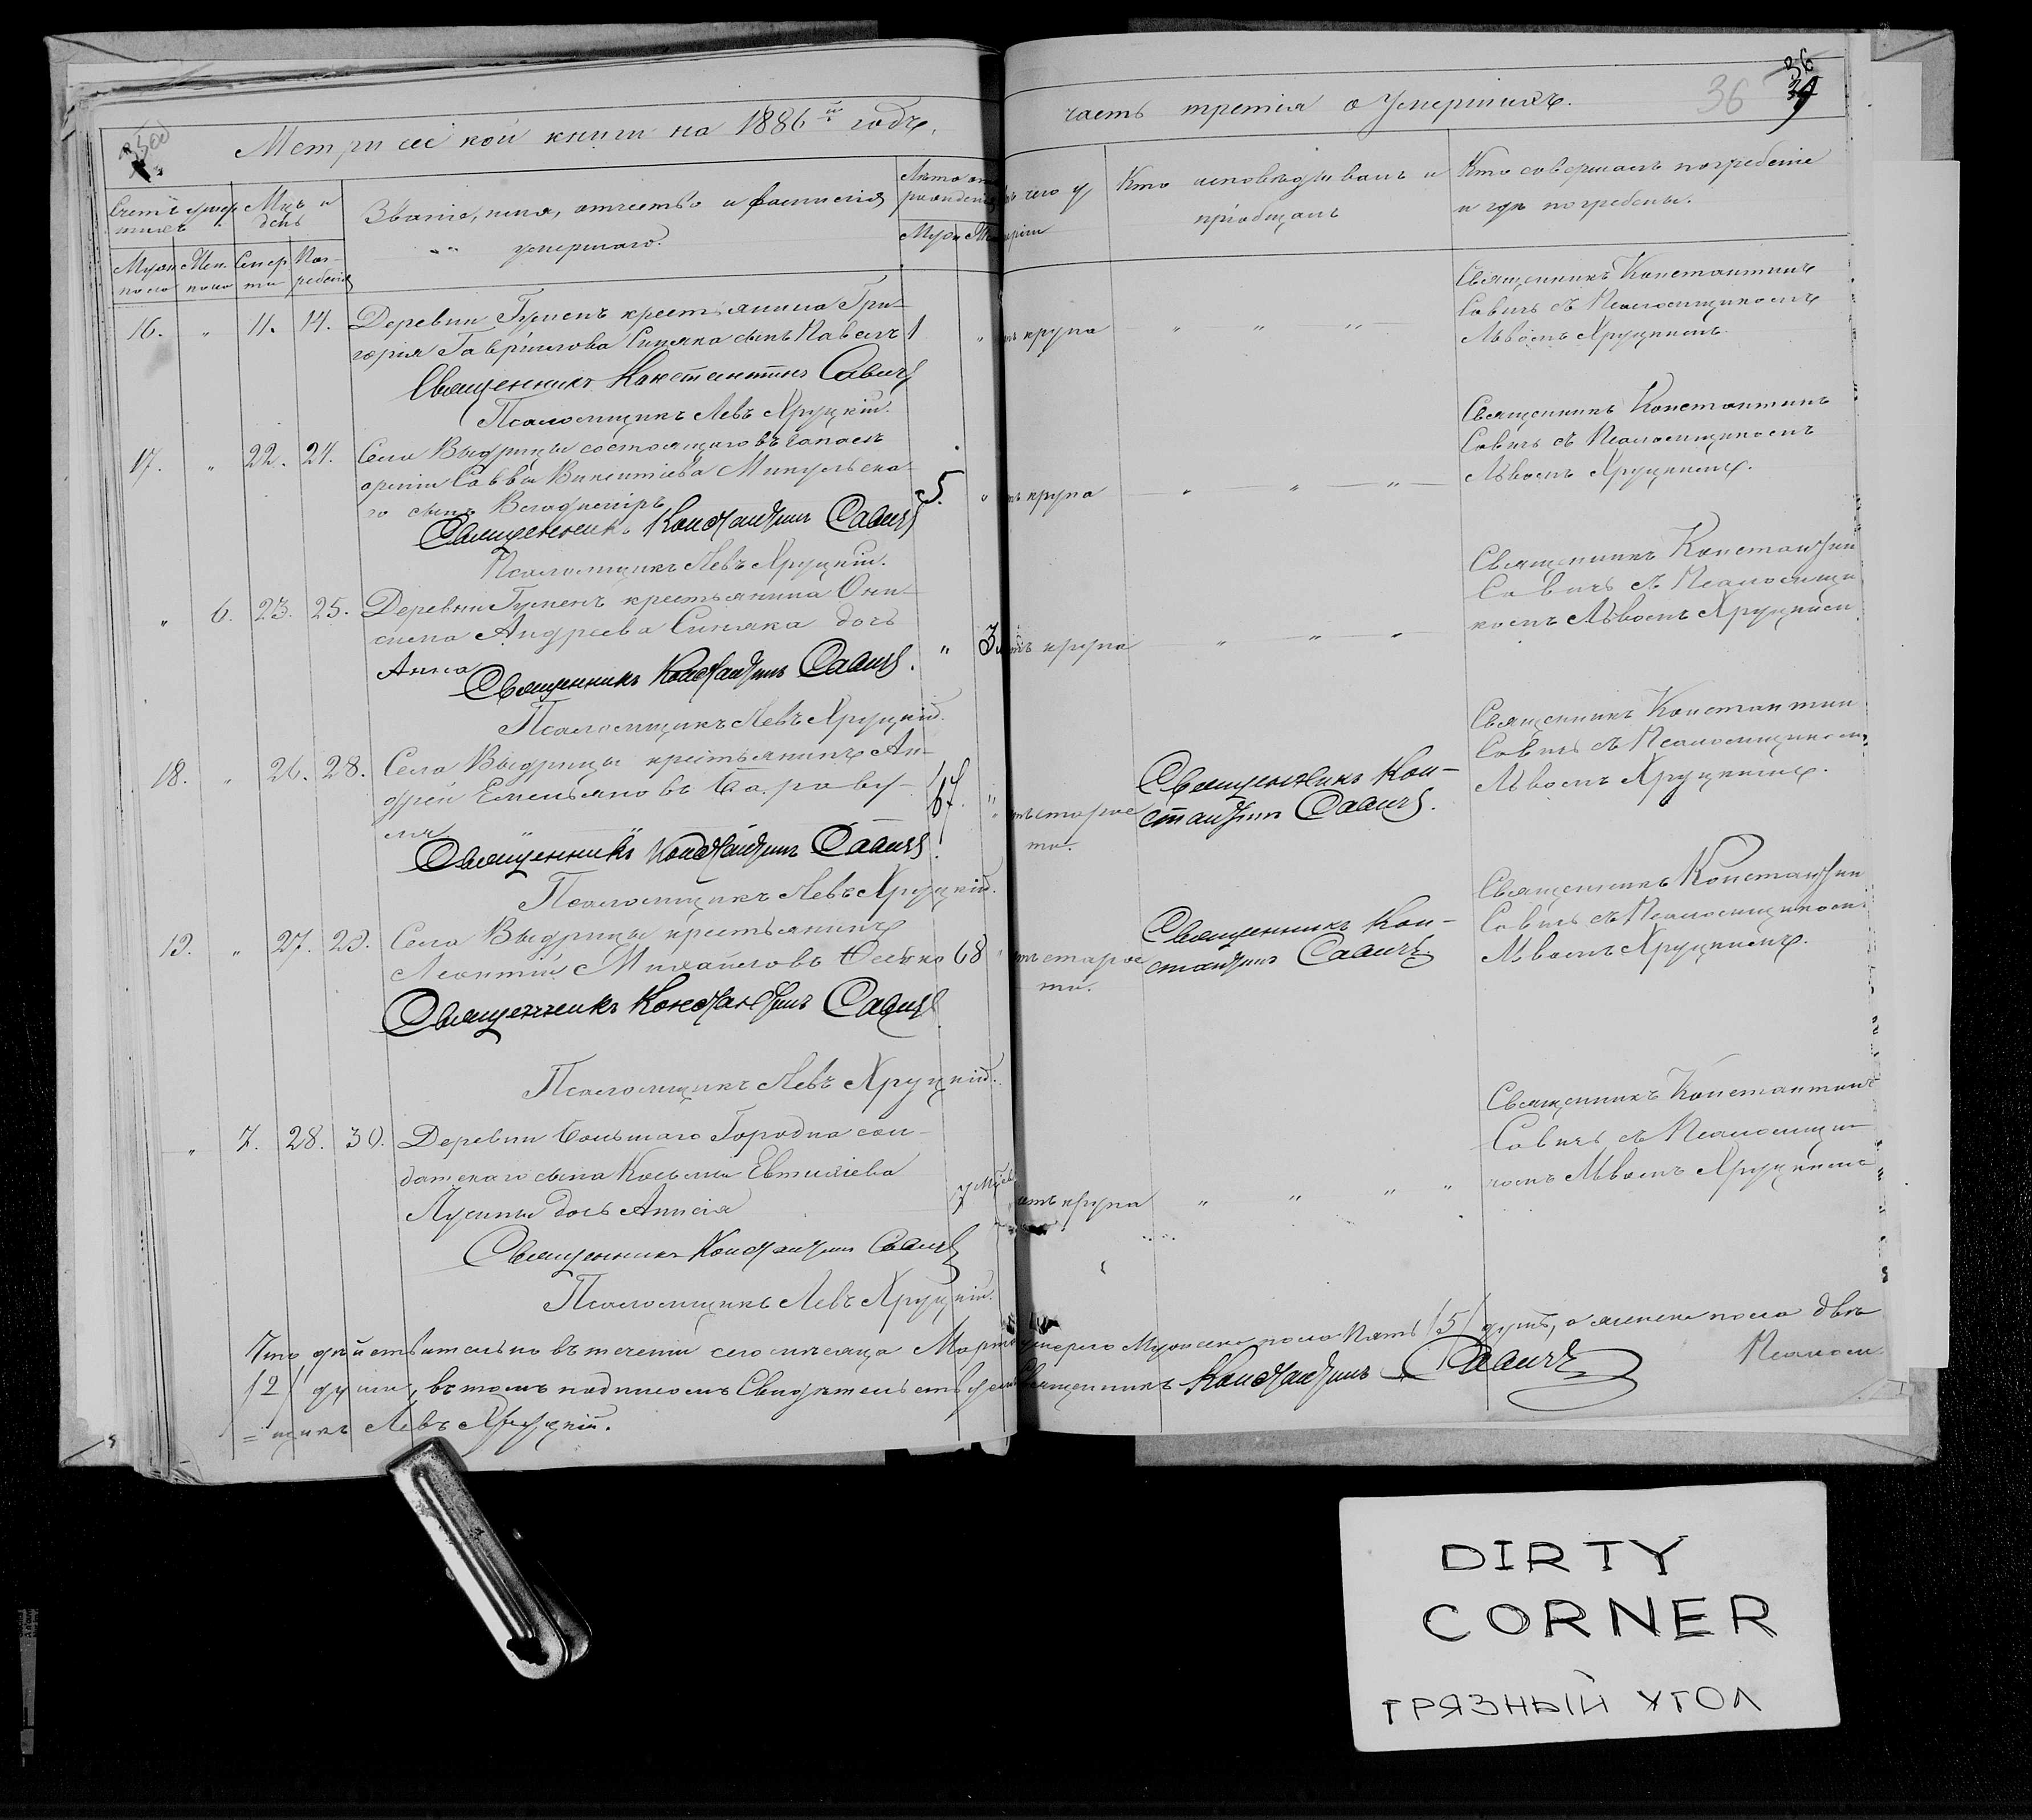 Метрической книги на 1886й годъ,
часть третія о Умершихъ.
36
36
Счетъ умер
шихъ
Мцъ и
день
Званіе, имя, отчество и фамилія
умершаго.
Муж
Кто исповѣдывалъ и
пріобщалъ
Кто совершалъ погребеніе
и гдѣ погребены.
16. " 11. 14. Деревни Гуменъ крестьянина Гри-
горія Гавріилова Синяка сынъ Павелъ 1 " крупа " " "
Священникъ Константинъ Савичъ
Псаломщикъ Левъ Хруцкій.
Священникъ Константинъ
Савичъ съ Псаломщикомъ
Львомъ Хруцкимъ.
17. " 22. 24. Села Выдрицы состоящаго въ запасѣ
арміи Саввы Викентіева Микульска-
го сынъ Володиміръ 5. " крупа " " "
Священникъ Константинъ Савичъ
Псаломщикъ Левъ Хруцкій.
Священникъ Константинъ
Савичъ съ Псаломщикомъ
Львомъ Хруцкимъ.
" 6. 23. 25. Деревни Гуменъ крестьянина Они-
сима Андреева Синяка дочь
Анна " 3 крупа " " "
Священникъ Константинъ Савичъ.
Псаломщикъ Левъ Хруцкій.
Священникъ Константин
Савичъ съ Псаломщи
комъ Львомъ Хруцкимъ
18. " 26. 28. Села Выдрицы крестьянинъ Ан-
дрей Емельяновъ 67. "
Священникъ Константинъ Савичъ.
Псаломщикъ Левъ Хруцкій.
старос
ти.
Священникъ Кон-
стантинъ Савичъ.
Священникъ Константин
Савичъ съ Псаломщикомъ
Львомъ Хруцкимъ.
19. " 27. 29. Села Выдрицы крестьянинъ
Леонтій Михайловъ 68 "
Священникъ Константинъ Савичъ
Псаломщикъ Левъ Хруцкій.
старос
ти.
Священникъ Кон-
стантинъ Савичъ
Священникъ Константин
Савичъ съ Псаломщикомъ
Львомъ Хруцкимъ.
" 7. 28. 30. Деревни Большаго Городна сол-
датскаго сына Косьмы Евтихіева
Лусины дочь Анисія 7 отъ крупа " " " "
Священникъ Константинъ Савичъ
Псаломщикъ Левъ Хруцкій.
Священникъ Константинъ
Савичъ съ Псаломщи-
комъ Львомъ Хруцкимъ
Что дѣйствительно въ теченіи сего мѣсяца Марта умерло Мужеска пола Пять /5/ душъ, а женска пола двѣ
/2/ души, въ томъ подписомъ Свидѣтельствуемъ Священникъ Константинъ Савичъ Псалом
=щикъ Левъ Хруцкій.
DIRTY
CORNER
ГРЯЗНЫЙ УГОЛ